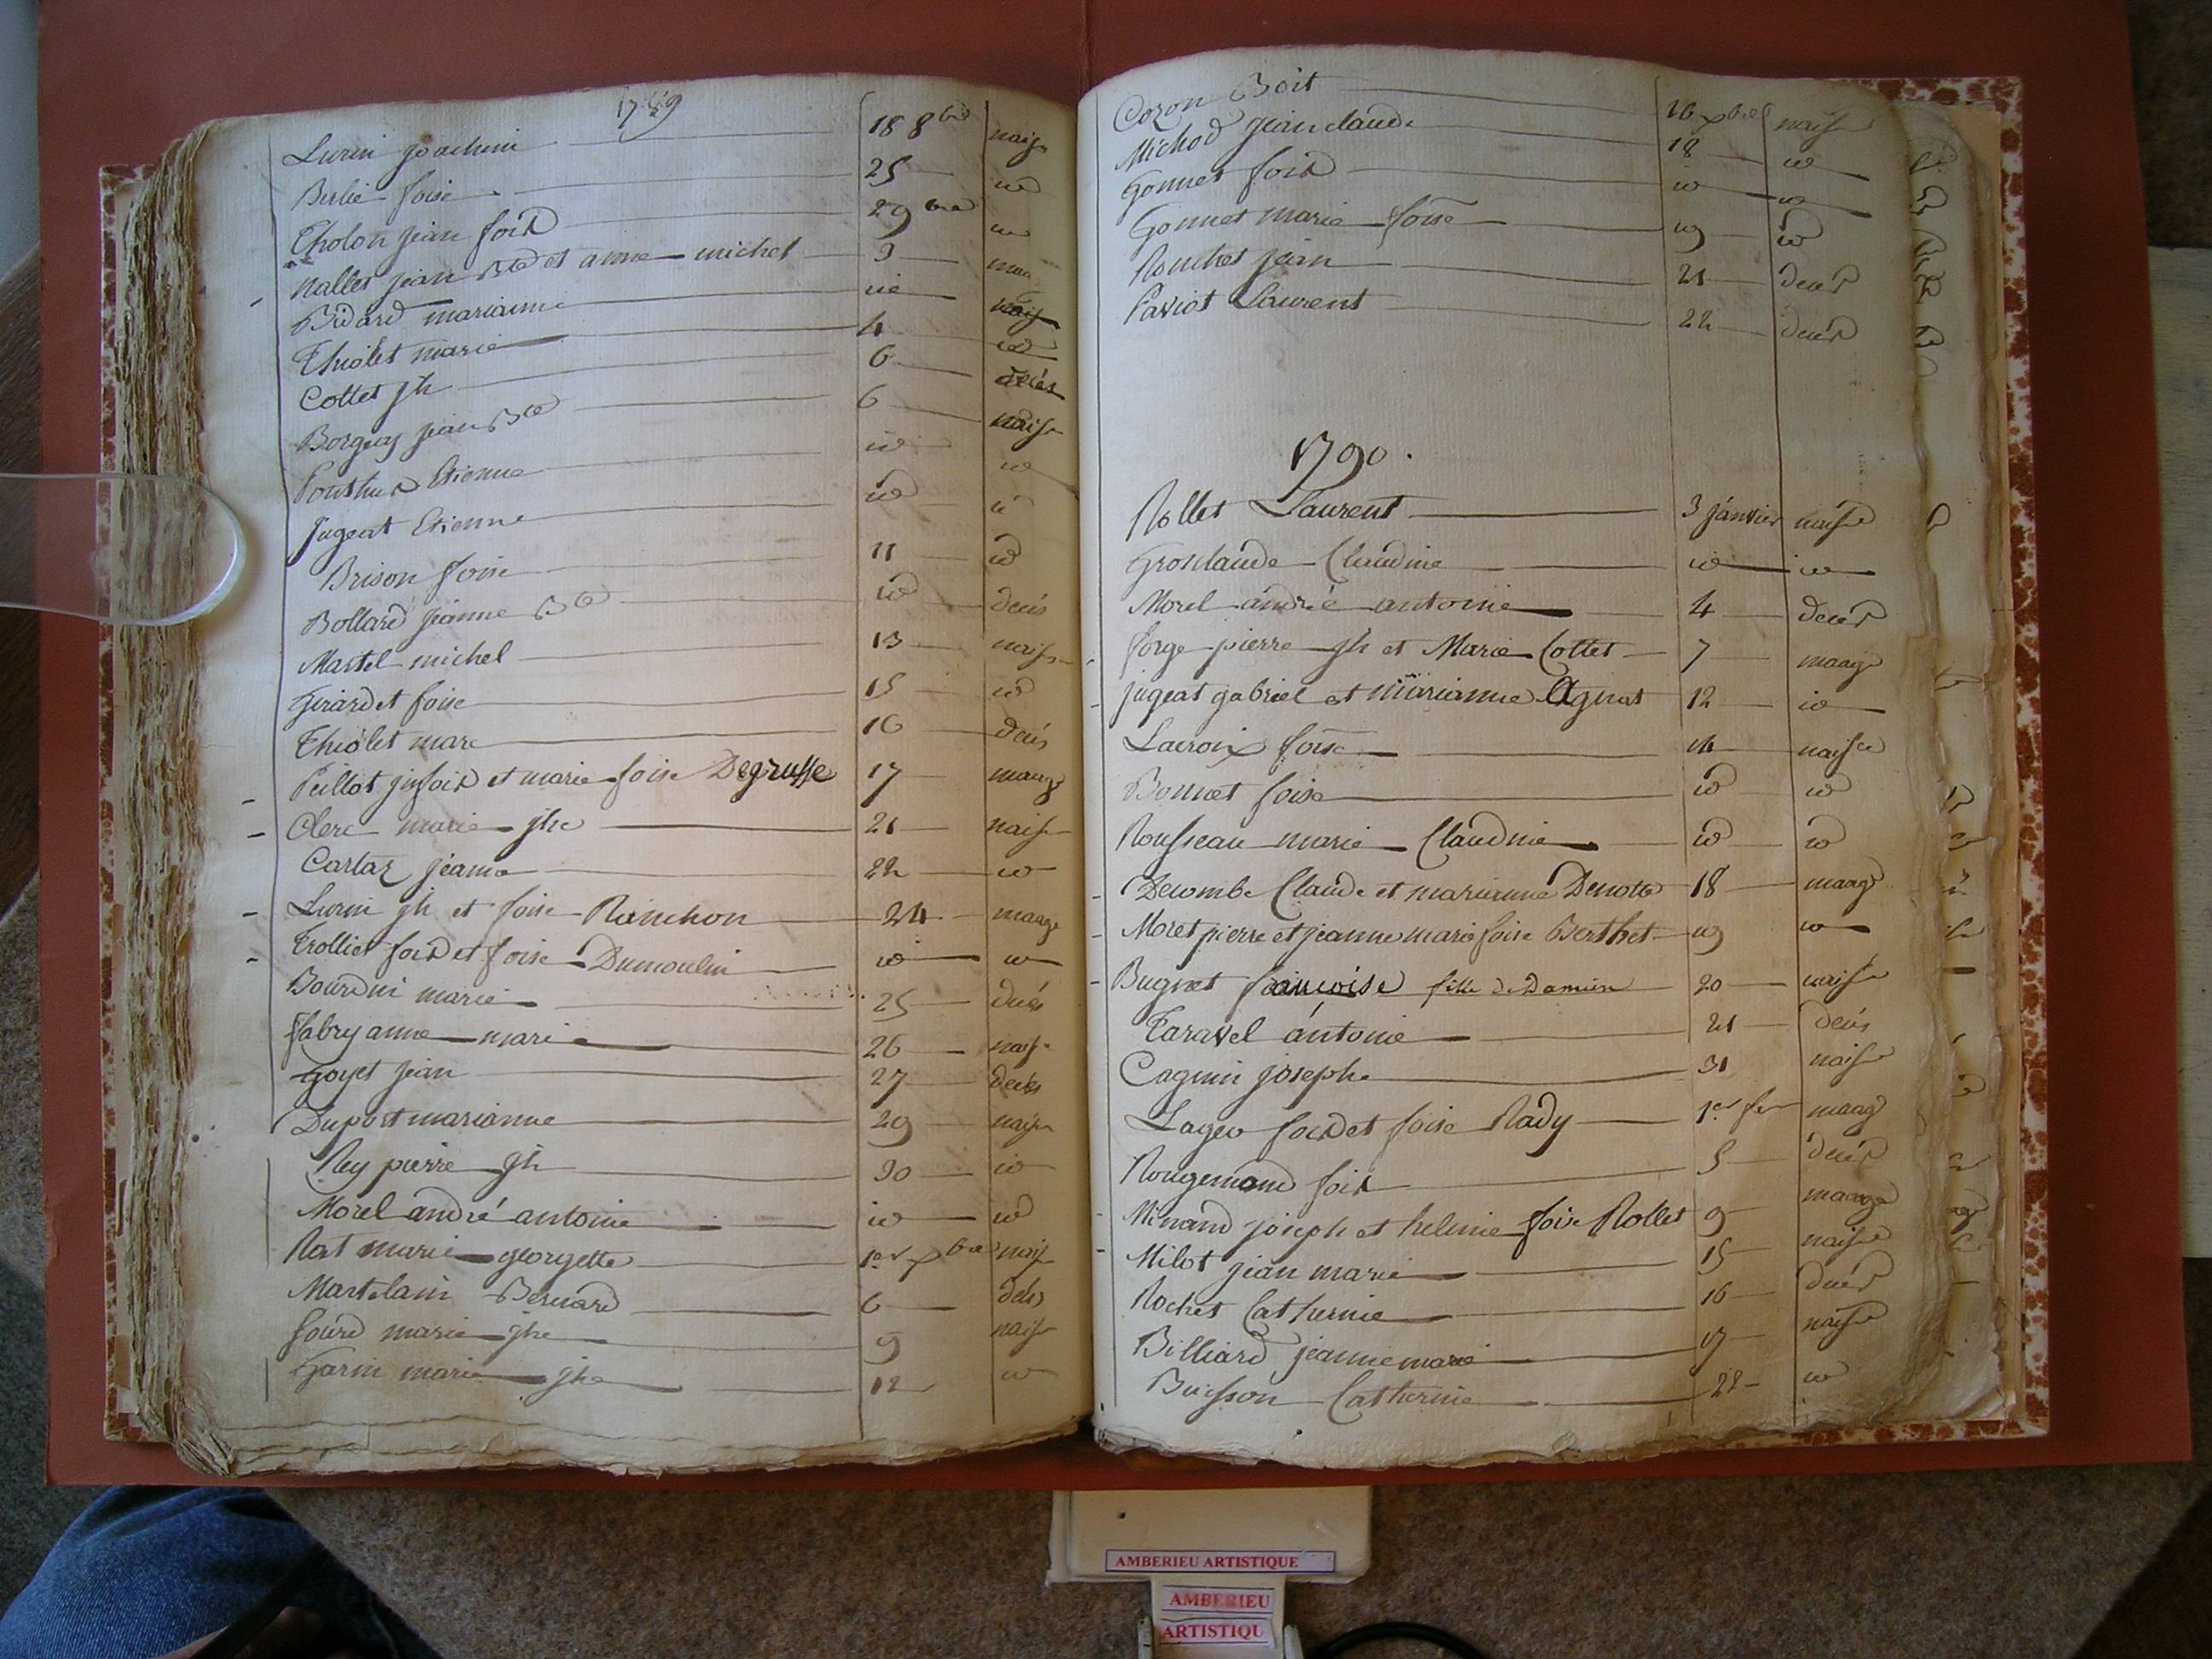 1789
Lurin joachim 18 8bre naiss
Berlie foise 25 id
Tholon jean fois 29 bre id
Nallet jean Bte et anne michel 3 mar
Bidard marianne id naiss
Thiolet marie 4 id
Cottet jh 6 décès
Borgey jean Bte 6 naiss
Ponthus Etienne id id
jugeat Etienne id id
Brison foise 11 id
Bollard jeanne Bte id décés
Martel michel 13 naiss
Girardet foise 15 id
Thiolet marc 16 décés
Peillot jn fois et marie foise Degrusse 17 maage
Clerc marie jhe 21 naiss
Cartaz jeanne 22 id
Lurin jh et foise Ranchon 24 maage
Trolliet fois et foise Dumoulin id id
Bourdin marie 25 décés
fabry anne marie 26 naiss
Goyet jean 27 décés
Duport marianne 29 naiss
Rey pierre jh 30 id
Morel andré antoine id id
Rat marie georgette 1er xbre naiss
Martelain Bernard 6 décés
Sourd marie jhe 9 naiss
Garin marie jhe 12 id
Cozon Boit 16 xbre naiss
Michod jean claude 18 id
Gonnet fois id id
Gonnet marie foise 19 id
Rouchet jean 21 decés
Paviot Laurent 22 decés
1790.
Rollet Laurent 3 janvier naisce
Grosclaude Claudine id id
Morel andré antoine 4 decés
forge pierre jh et Marie Cottet 7 maage
jugeat gabriel et marianne Aginat 12 id
Lacroix foise 14 naisce
Bonnet foise id id
Rousseau marie Claudine id id
Decombe Claude et marianne Denotte 18 maage
Moret pierre et jeanne marie foise Berthet 19 id
Bugnet françoise fille de Damien 20 naisce
Taravel antoine 21 décés
Cagnin josephe 31 naisce
Lageo fois et foise Rady 1er fer maage
Rougemond fois 5 decés
Minand joseph et heleine foise Rollet 9 maage
Milot jean marie 15 naisce
Rochet Catherine 16 decés
Billiard jeanne marie 17 naisce
Buisson Catherine 22 id
AMBERIEU ARTISTIQUE
AMBERIEU
ARTISTIQU